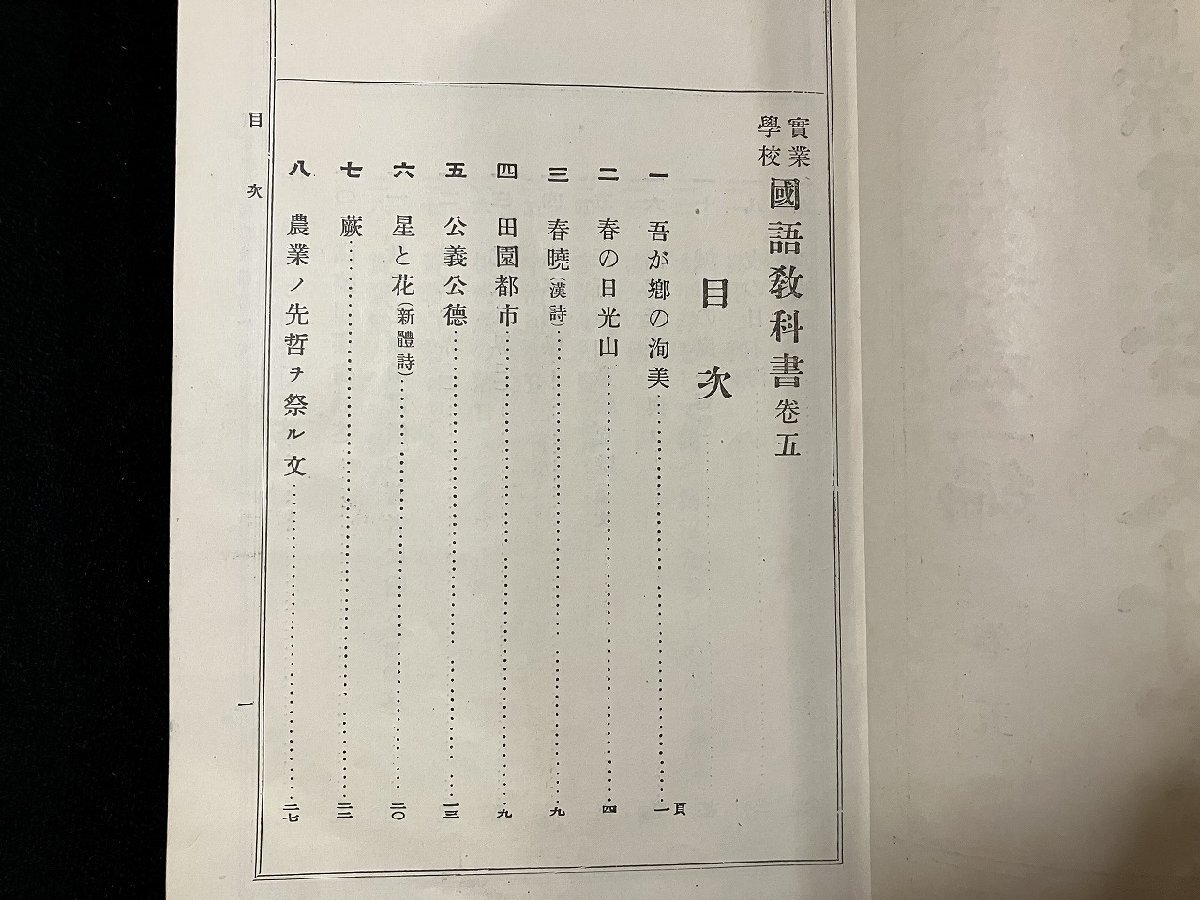 實業學校 國語教科書 卷五
目次
頁
一 吾が鄕の洵美 一
二 春の日光山 四
三 春曉(漢詩) 九
四 田園都市 九
五 公義公德 一三
六 星と花(新體詩) 二〇
七 蕨 二二
八 農業ノ先哲ヲ祭ル文 二七
目次
一